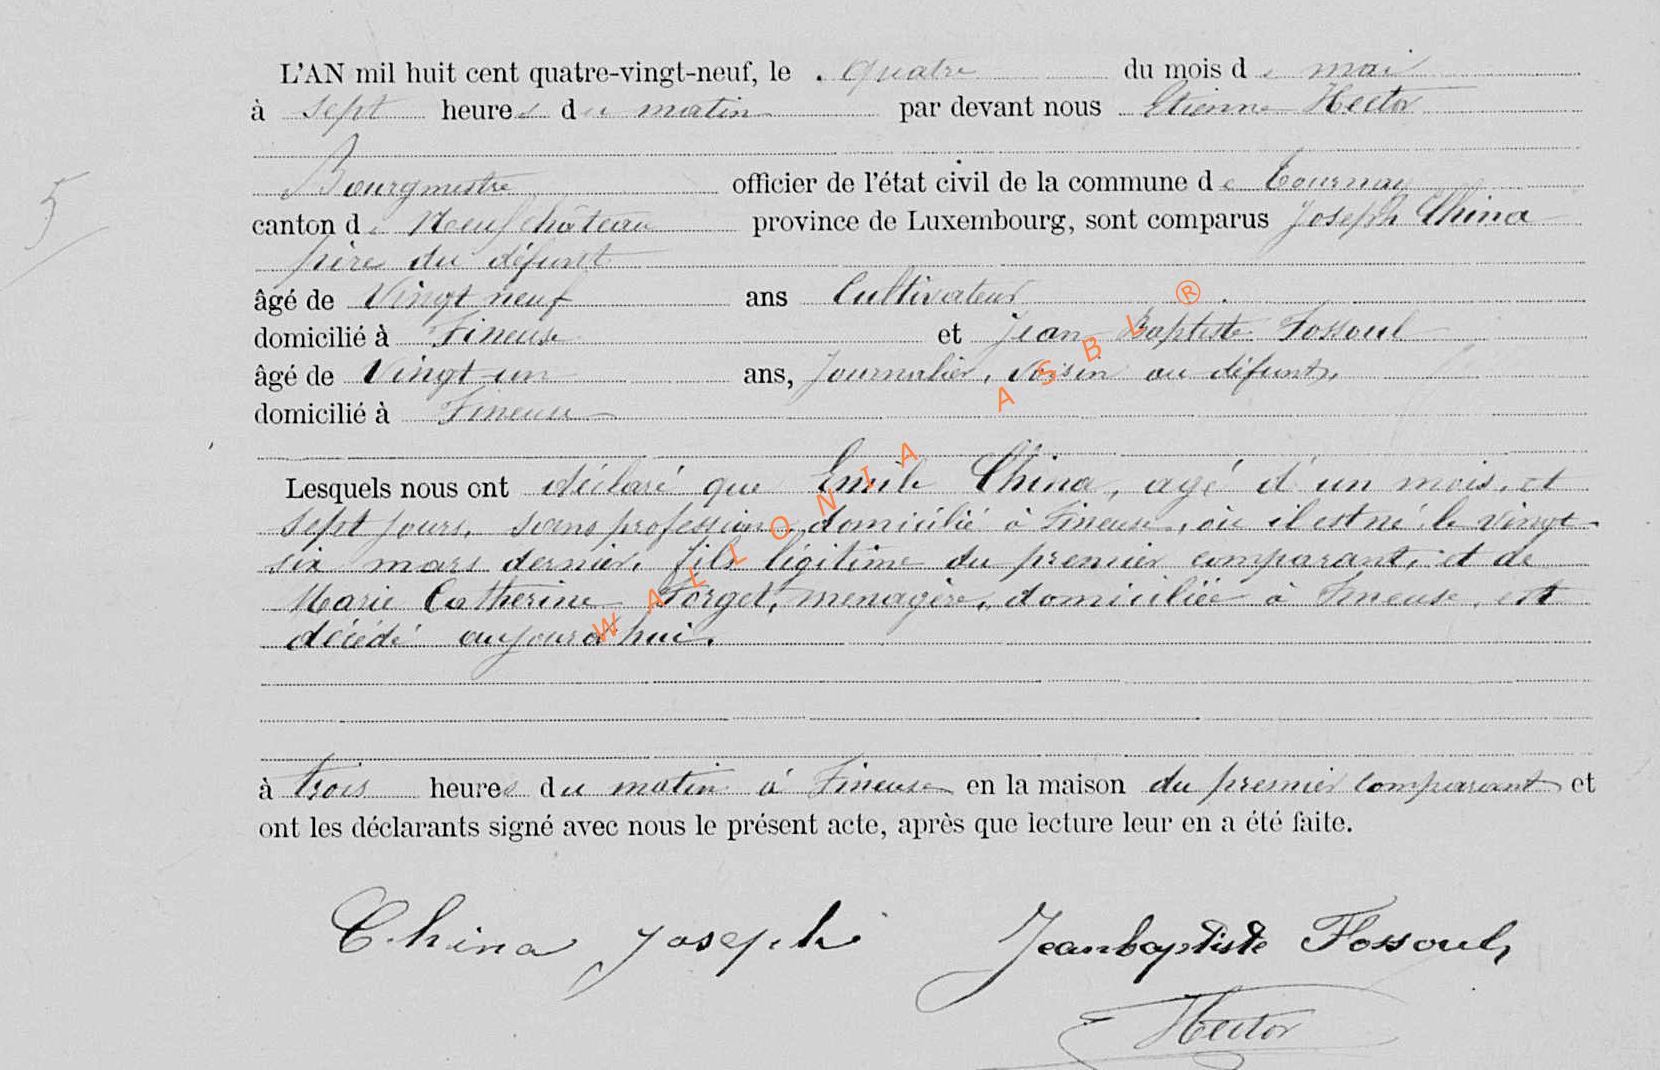 L'AN mil huit cent quatre-vingt-neuf, le quatre du mois de mai
à sept heures du matin par devant nous Etienne Hector
Bourgmestre officier de l'état civil de la commune de Tournay
canton de Neufchâteau province de Luxembourg, sont comparus Joseph China
père du défunt
âgé de Vingt neuf ans Cultivateur
domicilié à Fineuse et Jean Baptiste Fossoul
âgé de Vingt-un ans, Journalier, Voisin au défunt,
domicilié à Fineuse
5
Lesquels nous ont déclaré que Emile China, agé d'un mois, et
sept jours, sans profession, domicilié à Fineuse, où il est né le vingt-
six mars dernier, fils légitime du premier comparant, et de
Marie Catherine Forget, ménagère, domiciliée à Fineuse, est
décédé aujourd'hui.
à trois heures du matin à Fineuse en la maison du premier comparant et
ont les déclarants signé avec nous le présent acte, après que lecture leur en a été faite.
China Joseph Jeanbaptiste Fossoul
Hector
WALLONIA ASBL ®